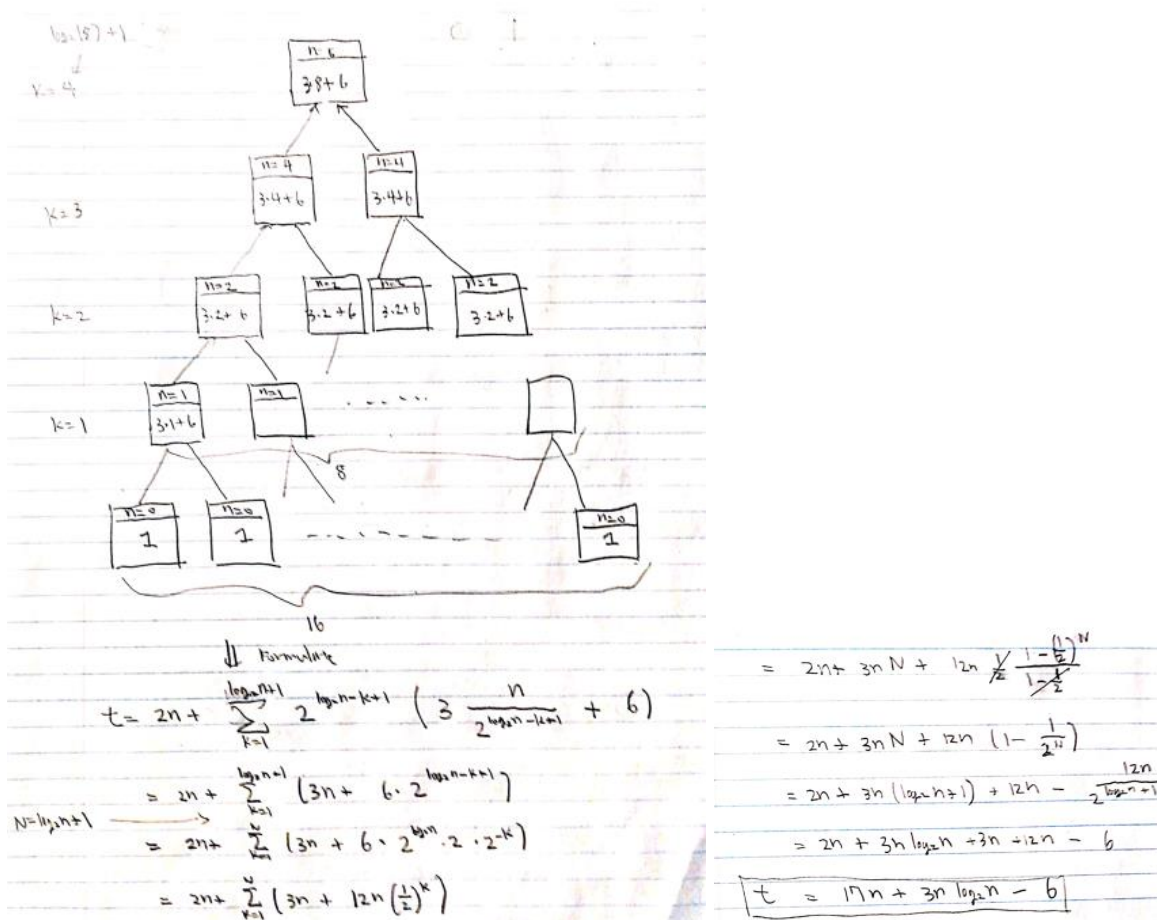 log₂(8)+1
k=4
3·8+6
n=4 n=4
3·4+6 3·4+6
k=3
n=2 n=2 n=2 n=2
3·2+6 3·2+6 3·2+6 3·2+6
k=2
n=1 n=1 ......
3·1+6
k=1
8
n=0 n=0 n=0
1 1 1
16
⇓
t = 2n + \sum_{k=1}^{log₂n+1} 2^{log₂n-k+1} ( 3 \frac{n}{2^{log₂n-k+1}} + 6 )
= 2n + \sum_{k=1}^{log₂n+1} (3n + 6 · 2^{log₂n-k+1})
N=log₂n+1
= 2n + \sum_{k=1}^{N} (3n + 6 · 2^{log₂n} · 2 · 2^{-k})
= 2n + \sum_{k=1}^{N} (3n + 12n (\frac{1}{2})^k)
= 2n + 3nN + 12n \frac{1}{2} \frac{1-(\frac{1}{2})^N}{1-\frac{1}{2}}
= 2n + 3nN + 12n (1 - \frac{1}{2^N})
= 2n + 3n (log₂n+1) + 12n - \frac{12n}{2^{log₂n+1}}
= 2n + 3n log₂n + 3n + 12n - 6
t = 17n + 3n log₂n - 6